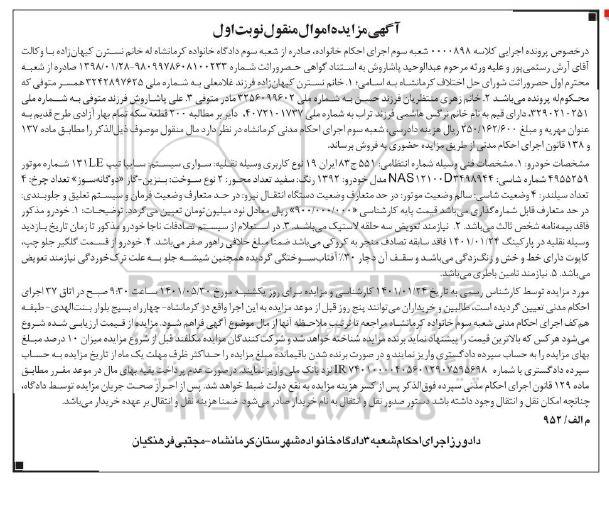 آگهی مزایده اموال منقول نوبت اول
درخصوص پرونده اجرایی کلاسه ۰۰۰۰۸۹۸ شعبه سوم اجرای احکام خانواده، صادره از شعبه سوم دادگاه خانواده کرمانشاه له خانم نسترن کیهان‌زاده با وکالت
آقای آرش رستمی‌پور و علیه ورثه مرحوم عبدالوحید پاشاروش به استناد گواهی حصروراثت شماره ۹۸۰۹۹۷۸۶۰۸۱۰۰۲۳۳-۱۳۹۸/۰۱/۲۸ صادره از شعبه
محترم اول حصروراثت شورای حل اختلاف کرمانشاه به اسامی: ۱. خانم نسترن کیهان‌زاده فرزند غلامعلی به شماره ملی ۳۲۴۲۸۹۷۶۲۵ همسر متوفی که
محکوم‌له پرونده می‌باشد ۲. خانم زهری منتظریان فرزند حسن به شماره ملی ۳۲۵۶۰۹۹۶۰۲ مادر متوفی ۳. علی پاشاروش فرزند متوفی به شماره ملی
۳۲۹۰۲۱۰۲۵۱، دارای قیم به نام خانم نرگس هاشمی فرزند تراب به شماره ملی ۴۰۷۳۱۰۱۷۳۷، دایر بر مطالبه ۲۰۰ قطعه سکه تمام بهار آزادی طرح قدیم به
عنوان مهریه و مبلغ ۳۵۰/۱۶۲/۶۰۰ ریال هزینه دادرسی، شعبه سوم اجرای احکام مدنی کرمانشاه در نظر دارد مال منقول موصوف ذیل‌الذکر را مطابق ماده ۱۳۷
و ۱۳۸ قانون اجرای احکام مدنی از طریق مزایده حضوری به فروش برساند.
مشخصات خودرو: ۱. مشخصات فنی وسیله شماره انتظامی: ۵۵۱ ج ۸۳ ایران ۱۹ نوع کاربری وسیله نقلیه: سواری سیستم: سایپا تیپ ۱۳۱LE شماره موتور
۴۹۵۵۲۵۹ شماره شاسی: NAS۴۱۲۱۰۰D۳۴۹۸۹۴۴ مدل خودرو: ۱۳۹۲ رنگ: سفید تعداد محور: ۲ نوع سوخت: بنزین-گاز «دوگانه‌سوز» تعداد چرخ: ۴
تعداد سیلندر: ۴ وضعیت شاسی: سالم وضعیت موتور: در حد متعارف وضعیت دستگاه انتقال نیرو: در حد متعارف وضعیت فرمان و سیستم تعلیق و جلوبندی:
در حد متعارف قابل شماره‌گذاری می‌باشد قیمت پایه کارشناسی «۹۰۰/۰۰۰/۰۰۰» ریال معادل نود میلیون تومان تعیین می‌گردد. توضیحات: ۱. خودرو مذکور
فاقد بیمه‌نامه شخص ثالث می‌باشد. ۲. نیازمند تعویض سه حلقه لاستیک می‌باشد. ۳. در استعلام از سیستم تصادفات ناجا خودرو مذکور تا زمان تاریخ بازدید
وسیله نقلیه در پارکینگ ۱۴۰۱/۰۱/۲۴ فاقد سابقه تصادف منجر به کروکی می‌باشد ضمنا مبلغ خلافی راهور صفر می‌باشد. ۴. خودرو از قسمت گلگیر جلو چپ،
کاپوت دارای خط و خش و زنگ‌زدگی می‌باشد و سقف آن دچار ۳۰٪ آفتاب‌سوختگی گردیده همچنین شیشه جلو به علت ترک‌خوردگی نیازمند تعویض
می‌باشد. ۵. نیازمند تامین باطری می‌باشد.
مورد مزایده توسط کارشناس رسمی به تاریخ ۱۴۰۱/۰۱/۲۴ کارشناسی و مزایده برای روز یکشنبه مورخ ۱۴۰۱/۰۵/۳۰ ساعت ۹:۳۰ صبح در اتاق ۲۷ اجرای
احکام مدنی تعیین گردیده است، طالبین و خریداران می‌توانند پنج روز قبل از موعد مزایده به این اجرا واقع در کرمانشاه-چهارراه بسیج بلوار بنت‌الهدی-طبقه
هم‌کف اجرای احکام مدنی شعبه سوم خانواده کرمانشاه مراجعه تا ترتیب ملاحظه آنها از مال موضوع آگهی فراهم شود. مزایده از قیمت ارزیابی شده شروع
می‌شود هر کس که بالاترین قیمت را پیشنهاد نماید برنده مزایده شناخته خواهد شد و شرکت‌کنندگان مزایده مکلفند قبل از شروع مزایده میزان ۱۰ درصد مبلغ
بهای مزایده را به حساب سپرده دادگستری واریز نمایند و در صورت برنده شدن باقیمانده مبلغ مزایده را حداکثر ظرف مهلت یک ماه از تاریخ مزایده به حساب
سپرده دادگستری با شماره نزد بانک ملی واریز نمایند. در صورت عدم پرداخت بقیه بهای مال در موعد مقرر مطابق
ماده ۱۲۹ قانون اجرای احکام مدنی سپرده فوق‌الذکر پس از کسر هزینه مزایده به نفع دولت ضبط خواهد شد. پس از احراز صحت جریان مزایده توسط دادگاه،
چنانچه امکان نقل و انتقال وجود داشته باشد دستور صدور نقل و انتقال به نام خریدار صادر می‌شود. ضمنا هزینه نقل و انتقال بر عهده خریدار می‌باشد.
م الف/ ۹۵۲
دادورز اجرای احکام شعبه ۳ دادگاه خانواده شهرستان کرمانشاه-مجتبی فرهنگیان